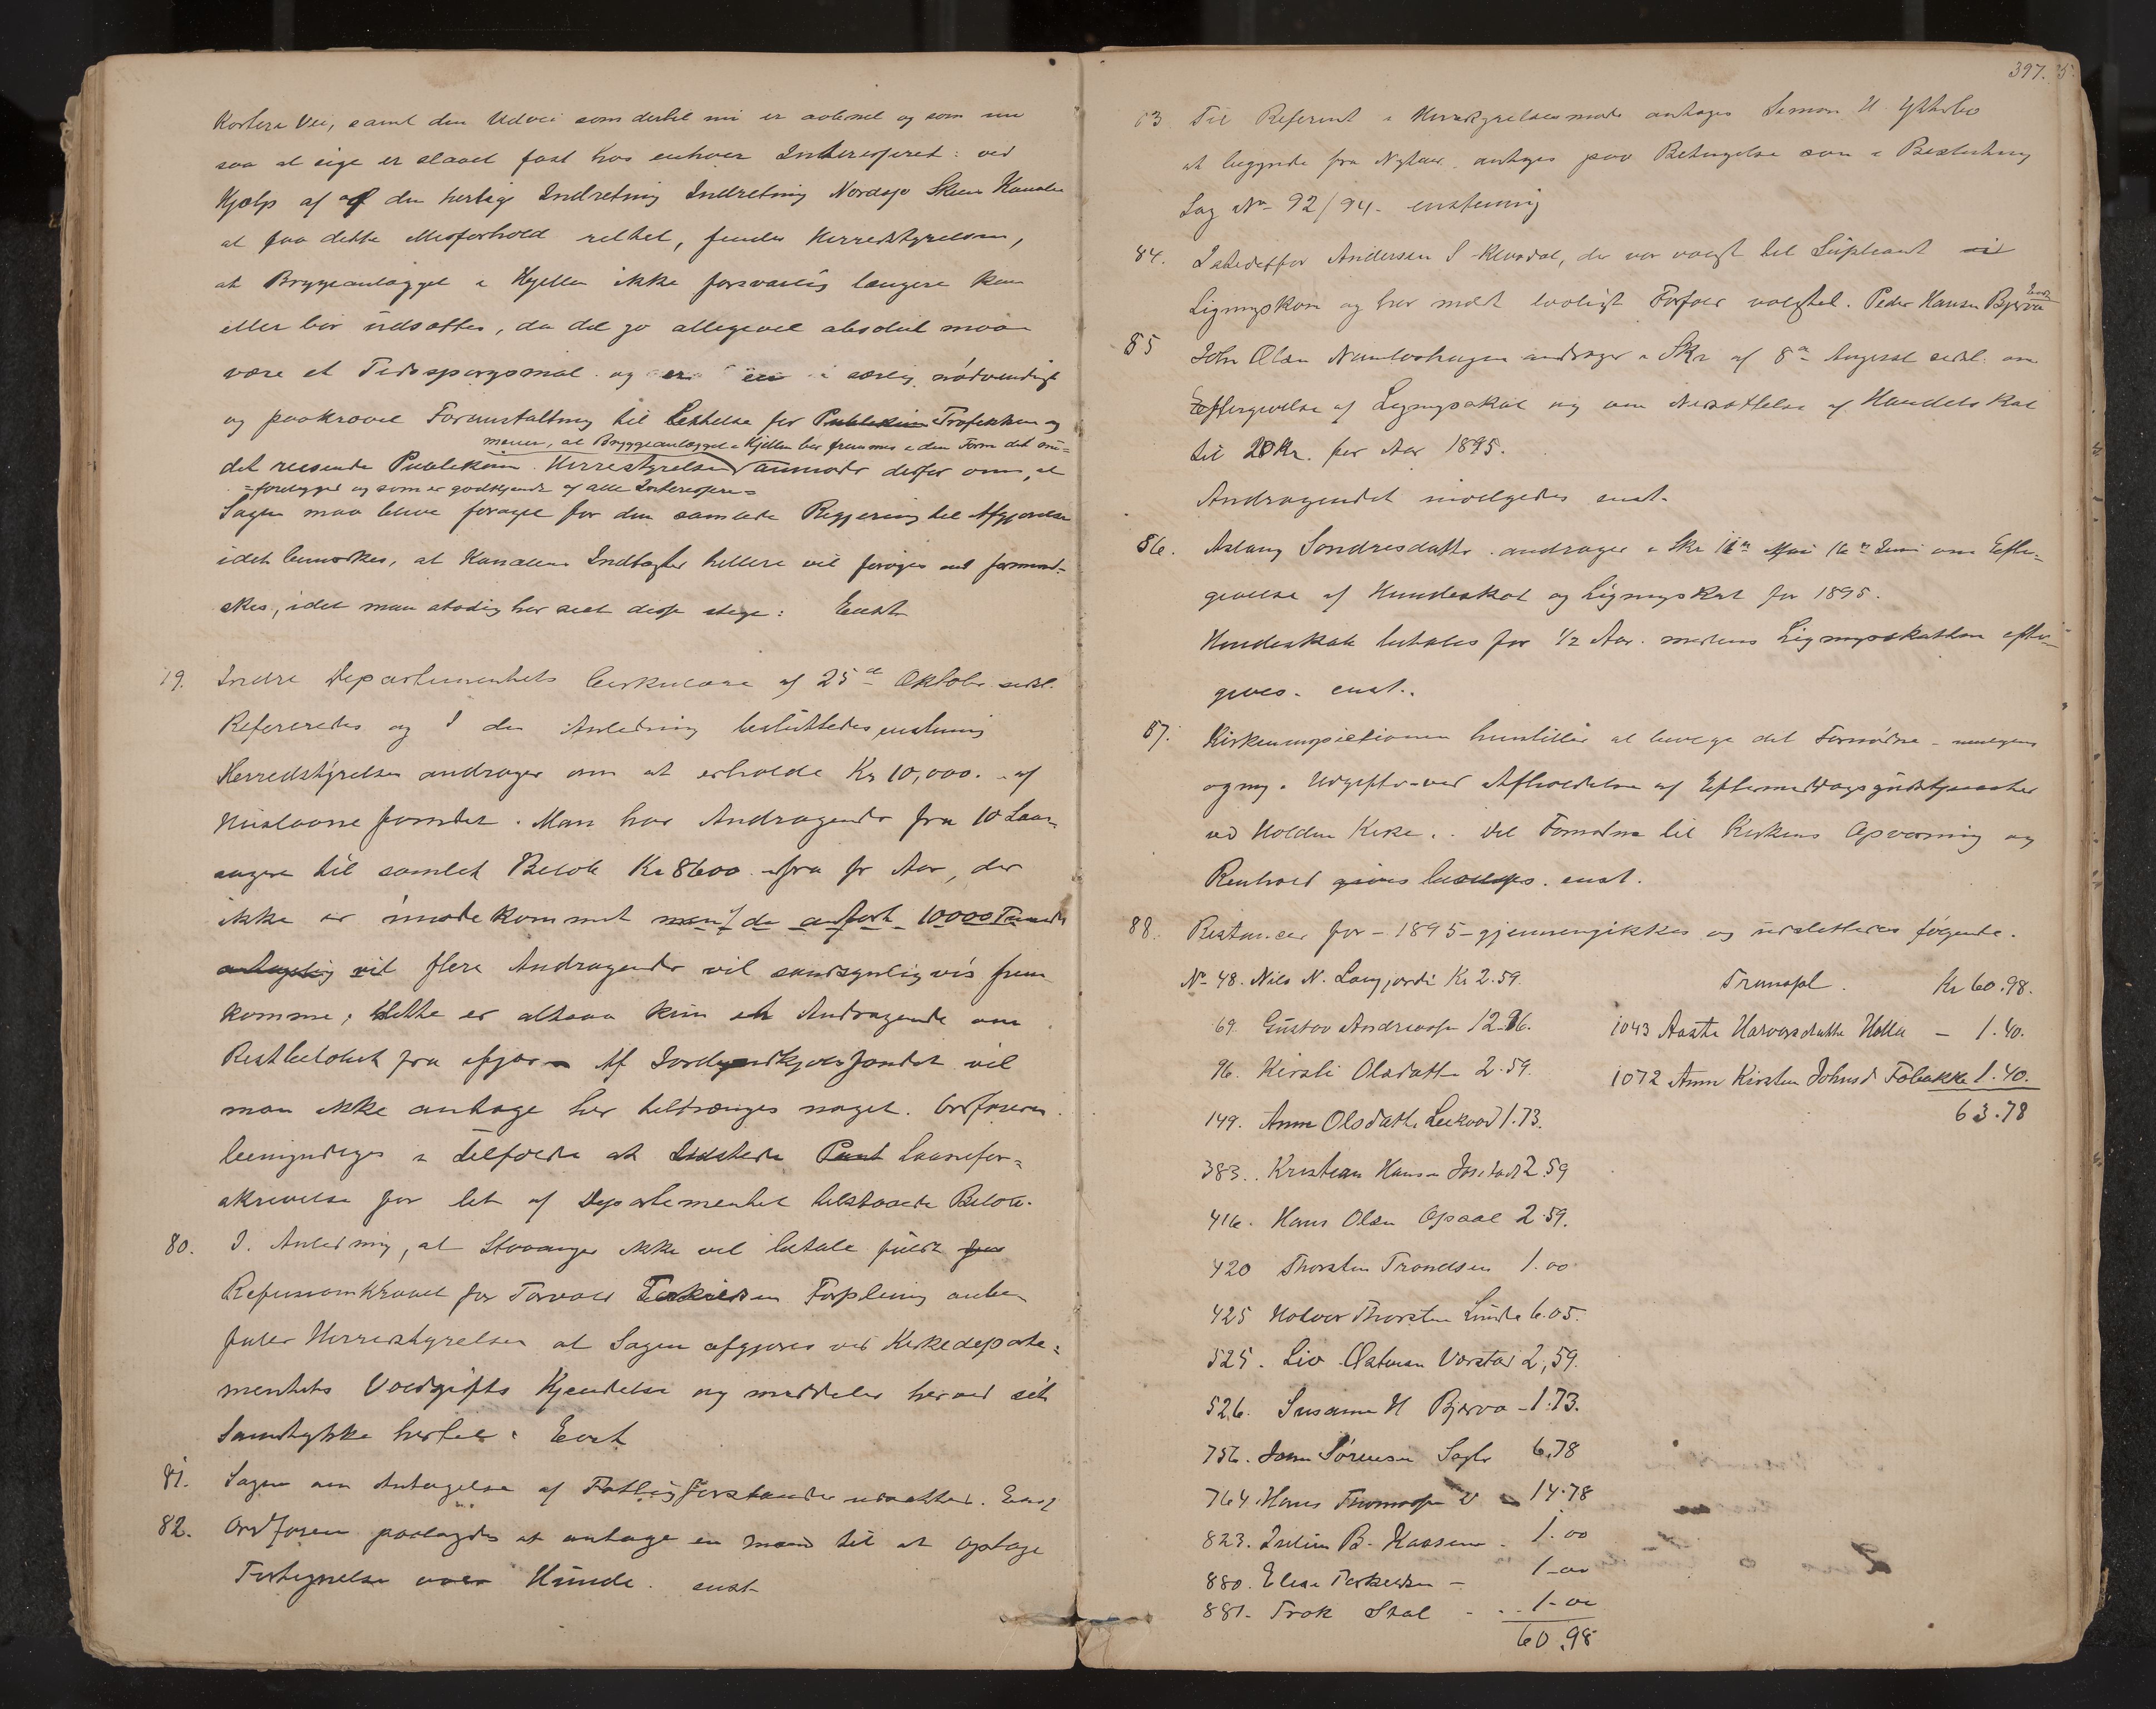 Kortere Vei, samt den Udvei som dertil nu er aabnet og som nu
saa at sige er slaaet fast hos enhver Interesseret: ved
Hjælp af den herlige Indretning Indretning Nordsjø Skien Kanalen
at faa dette Misforhold rettet, finder Herredstyrelsen,
at Bryggeanlægget i Hjellen ikke forsvarlig længere kan
eller bør udsættes, da det jo alligevel absolut maa
være et Tidsspørgsmål og er en særlig nødvendig
og paakrævet Foranstaltning til Lettelse for Publikum Trafikken og
mener, at Bryggeanlægget i Hjellen bør fremmes i den Form det nu=
det reisende Publikum. Herredstyrelsen anmoder derfor om, at
=foreligger og som er godkjendt af alle Interessere=
Sagen maa blive forelagt for den samlede Regjering til Afgjørelse
idet bemærkes, at Kanalens Indtægter hellere vil forøges end formind-
skes, idet man stadig har seet disse stige: Enst
79. Indre Departementets Cirkulære af 25de Oktober sidstl.
Refereredes og I den Anledning besluttedes enstemig
Herredstyrelsen andrager om at erholde Kr 10,000. af
Huslaanefondet. Man har Andragender fra 10 Laan-
søgere til samlet Beløb Kr 8600 fra fr Aar, der
ikke er imødekommet men da anført 10000
antagelig vil flere Andragender vil sandsynligvis frem
komme; dette er altsaa kun et Andragende om
Restbeløbet fra ifjor. Af Jordindkjøbsfondet vil
man ikke antage her tiltrænges noget. Ordføreren
bemyndiges i tilfælde at udstede Pant Laanefor=
skrivelse for let af Departementet tilstaaede Beløb.
80. I Anledning, at Stavanger ikke vil betale fuldt for
Refusionskravet for Torvald Terkildsen Forpleining anbe
faler Herredstyrelsen at Sagen afgjøres ved Kirkedeparte=
mentets Voldgifts Kjendelse og meddeler herved sit
Samtykke hertil: Enst
81. Sagen om Antagelse af Fattigforstander udsættes. Enst
82. Ordføren paalagdes at antage en mand til at optage
Fortegnelse over Hunde. enst
397.
83 Til Referent i Herredstyrelsesmøde antages Simon H. Ytterbø
at begynde fra Nytaar, antages paa Betingelse som i Beslutning
Sag No 92/94. enstemig
84. Istedetfor Andersen S Klovdal, der var valgt til Supleant i
Ligningskom og har mældt lovligt Forfald valgtes. Peder Hansen Bjerva Enst
85 John Olsen Namløshagen andrager i Skr af 8de August sidstl. om
Eftergivelse af Ligningsskat og om Nedsættelse af Handelsskat
til 20 Kr. for Aar 1895.
Andragendet indvilgedes enst.
86. Aslaug Sondresdatter andrager i Skr 16de Juni om Efter-
givelse af Hundeskat og Ligningsskat for 1895.
Hundeskat betales for 1/2 Aar. medens Ligningsskatten efter-
gives. enst.
87. Kirkeinspektionen henstiller at bevilge det Fornødne
og Udgifter ved Afholdelse af Eftermiddagsgudstjenester
ved Holden Kirke. Det Fornødne til Kirkens Opvarming og
Renhold gives bevilges. enst.
88. Restancer for – 1895 – gjennemgikkes og udslettedes følgende.
No 48. Nils N. Langjordet Kr 2.59.
69. Gustav Andreassen 12.96.
96. Kirsti Olsdatter 2.59.
149. Anne Olsdatter Leekvad 1.73.
383. Kristian Hansen 2.59
416. Hans Olsen Opsael 2.59.
420 Thorsten Trondsen 1.00
425 Halvor Thorsten Linde 6.05.
525. Liv Østensen Værstad 2,59.
526. Susanne H Bjerva – 1.73.
756. John Sørensen 6.78
764 Hans Thomassen 14.78
823. Julius B. Kaasene. 1.00
880. Elise Terkildsen – 1-00
881. Trok Skal - .. 1-00
60.98
Transpt. Kr 60.98.
1043 Aaste Halvorsdatter Holla – 1.40.
1072 Anne Kirsten Johnsd Folbakke 1.40.
63.78